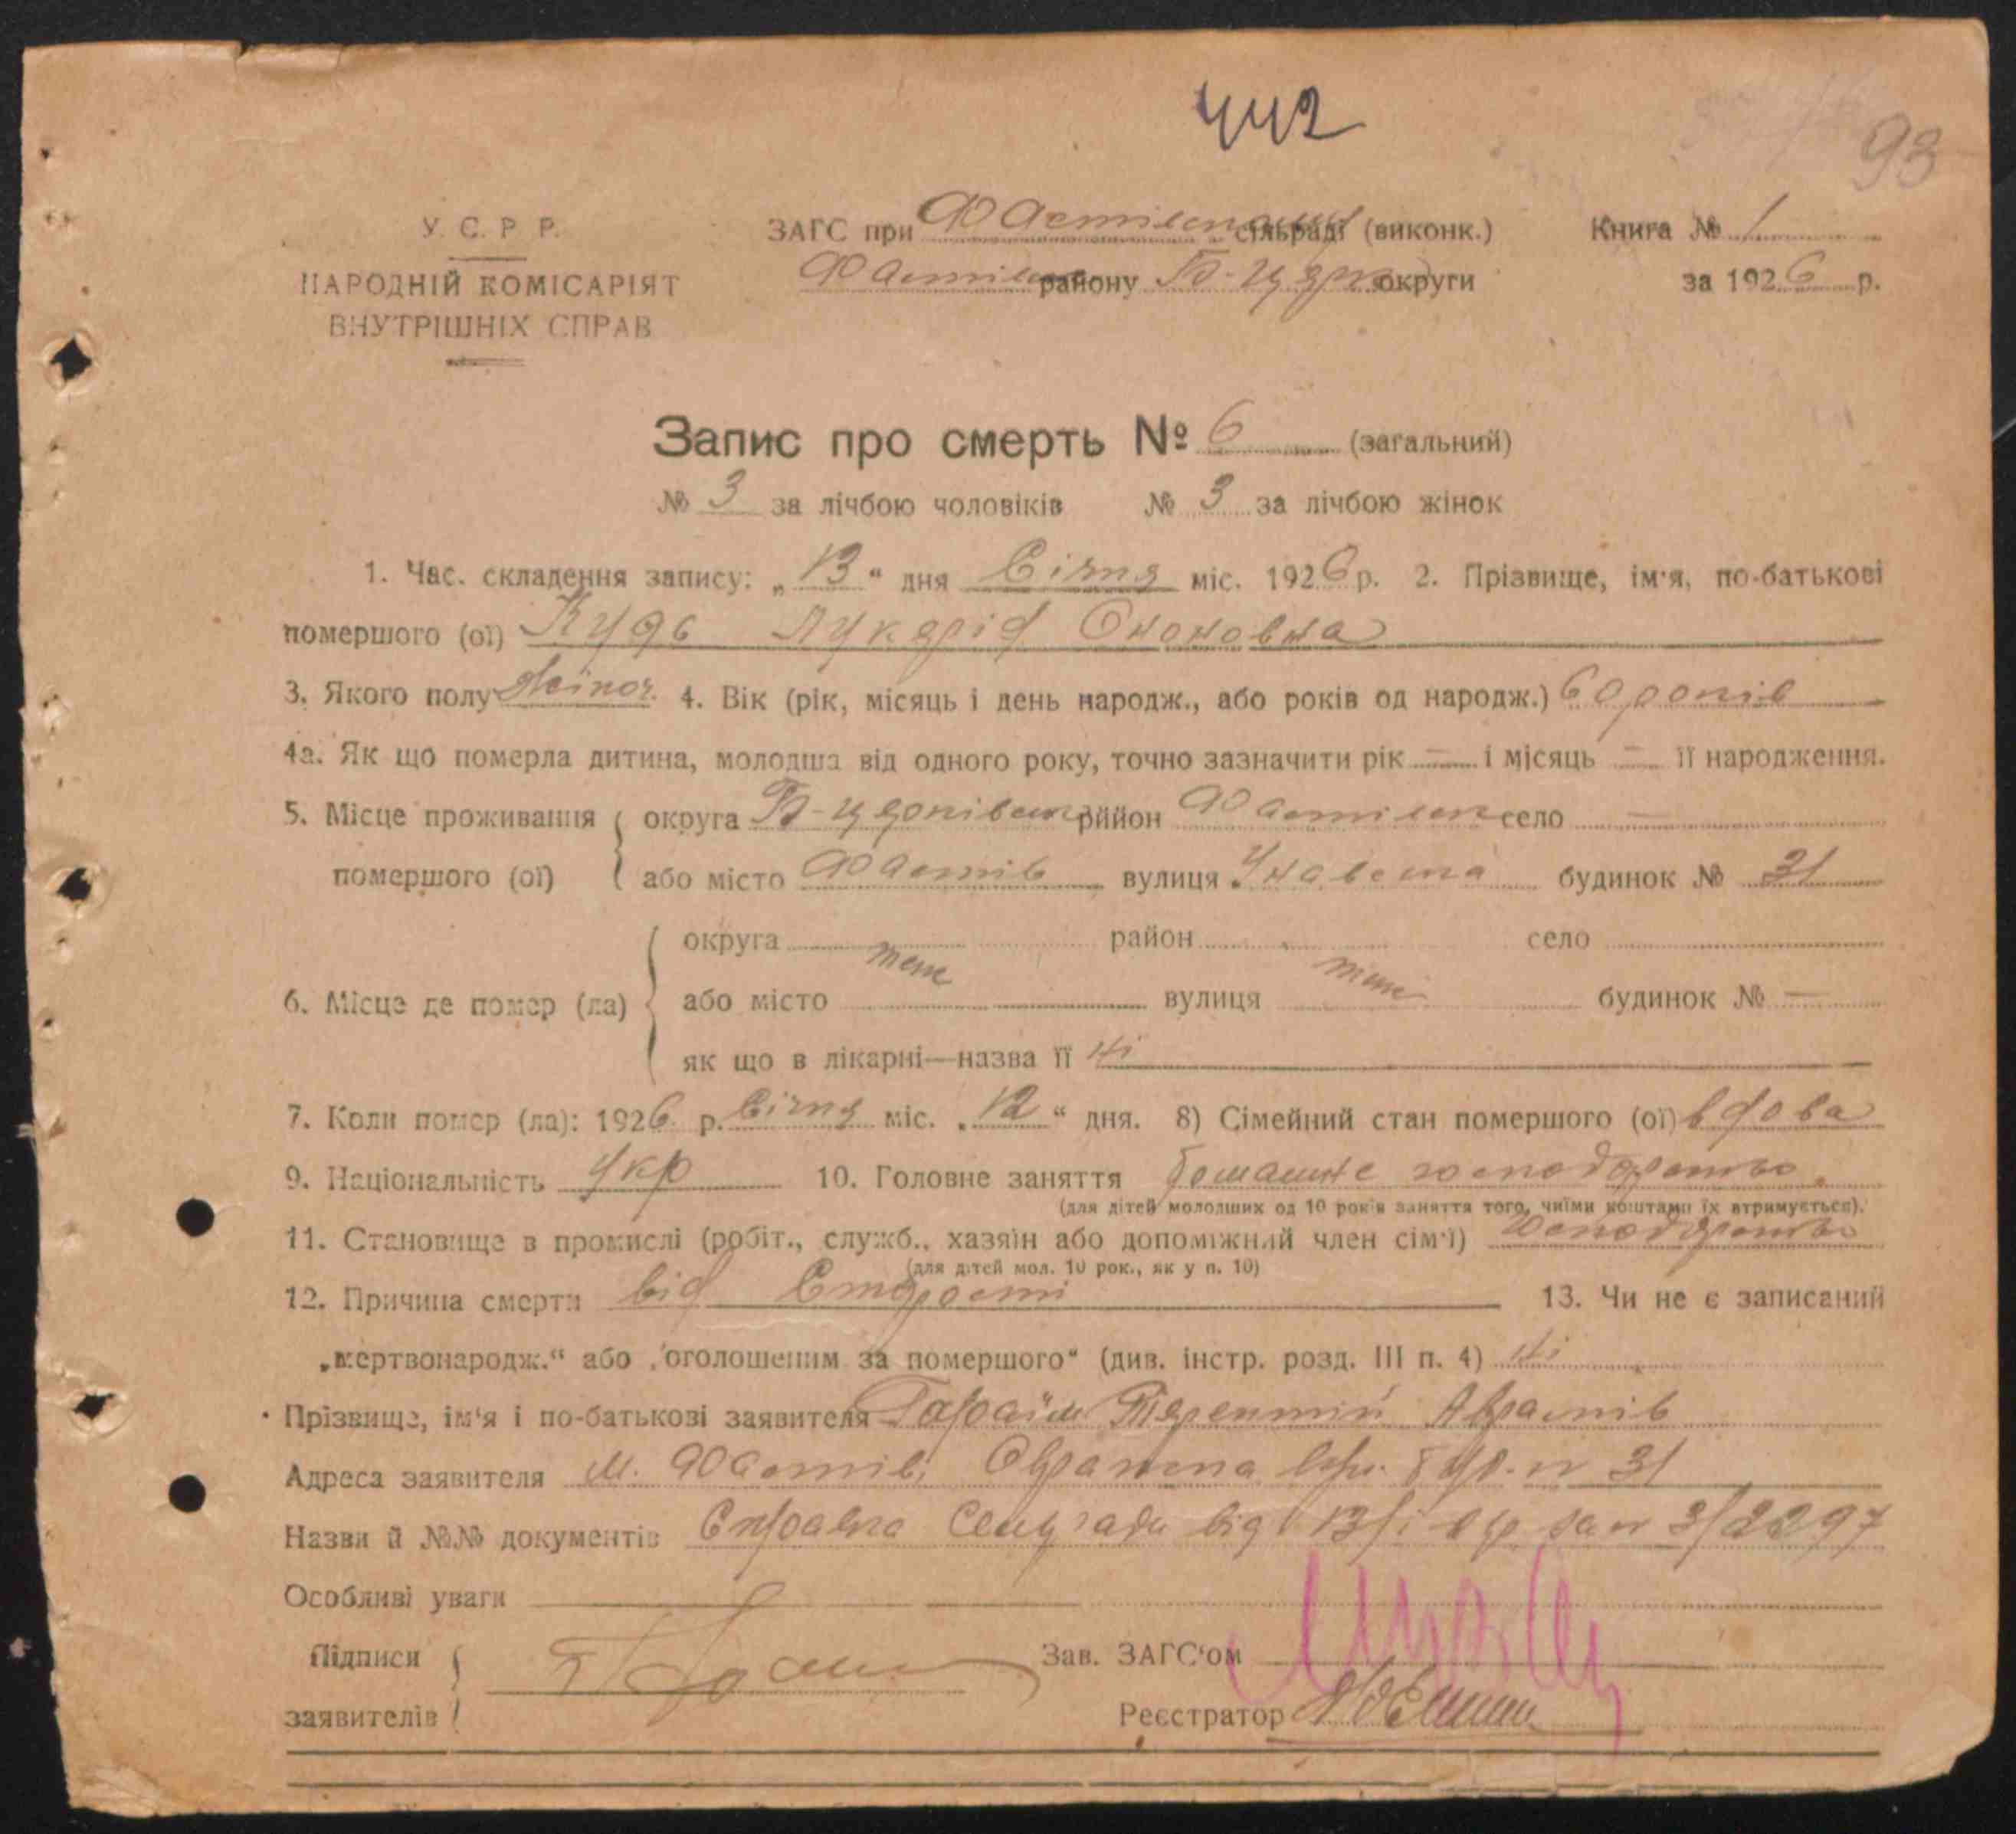 442
93
У. С. Р. Р.
НАРОДНІЙ КОМІСАРІЯТ
ВНУТРІШНІХ СПРАВ
ЗАГС при Фастівськ сільраді (виконк.)
Фастівськ району Б-Церк округи
Книга № 1
за 1926 р.
Запис про смерть № 6 (загальний)
№ 3 за лічбою чоловіків № 3 за лічбою жінок
1. Час. складення запису: „13“ дня Січня міс. 1926 р. 2. Прізвище, ім'я, по-батькові
помершого (ої) Кудь Лукерія
3. Якого полу жіноч. 4. Вік (рік, місяць і день народж., або років од народж.) 60 років
4а. Як що померла дитина, молодша від одного року, точно зазначити рік — і місяць — її народження.
5. Місце проживання округа Б-Церківськ район Фастівськ село —
помершого (ої) або місто Фастів вулиця будинок № 31
округа район село
6. Місце де помер (ла) або місто теж вулиця теж будинок № —
як що в лікарні—назва її ні
7. Коли помер (ла): 1926 р. Січня міс. „12“ дня. 8) Сімейний стан помершого (ої) вдова
9. Національність Укр 10. Головне заняття домашнє господарство.
(для дітей молодших од 10 років заняття того, чиїми коштами їх втримується).
11. Становище в промислі (робіт., служб., хазяїн або допоміжний член сім'ї) господарство
(для дітей мол. 10 рок., як у п. 10)
12. Причина смерти від Старости 13. Чи не є записаний
„мертвонародж.“ або „оголошеним за помершого“ (див. інстр. розд. III п. 4) ні
Прізвище, ім'я і по-батькові заявителя Терентій
Адреса заявителя м. Фастів, буд. № 31
Назви й №№ документів від 13/I за № 3/2297
Особливі уваги
Підписи
заявителів
Зав. ЗАГС'ом
Реєстратор